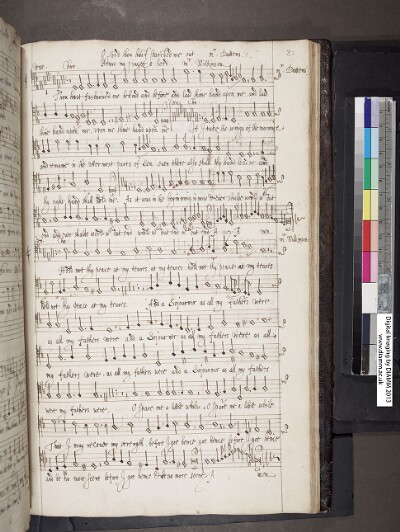 O Lord thou hast searched me out mr Batten
82
Heare my prayer o lord mr Wilkinson
mr Batten
Thou hast fashioned me behind and before and laid thine hand upon me and laid
thine hand upon me, upon me thine hand upon me If I take the wings of the morninge
and remaine in the uttermost parts of the sea, even there also shall thy hand lead me and
thy right hand shall hold me. As it was in the beginning is now & ever shalbe world without
end and ever shalbe world without end world without end without end A
men
mr Wilkinson
Hold not thy peace at my teares at my teares hold not thy peace at my teares
Hold not thy peace at my teares. And a Sojourner as all my fathers were
as all my fathers were and a Sojourner as all my fathers were as all
my fathers were as all my fathers were and a Sojourner as all my fathers
were my fathers were. O spare me a little while O spare me a little while
That I may recover my strength before I goe hence goe hence before I goe hence
and be no more seene before I goe hence & be no more seene. A
men
Digital Imaging by DIAMM 2013
www.diamm.ac.uk